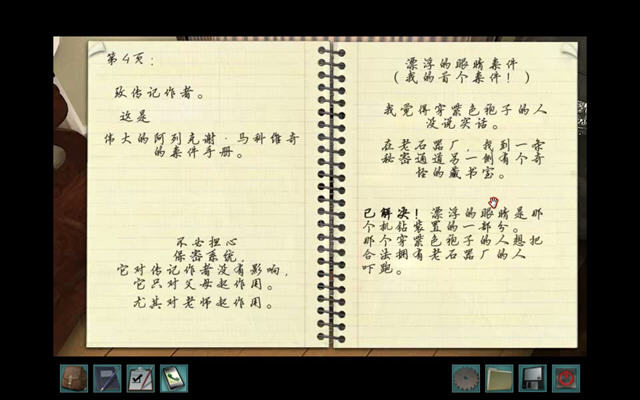 第4页：
致传记作者。
这是
伟大的阿列克谢·马科维奇
的案件手册。
不必担心
保密系统，
它对传记作者没有影响，
它只对父母起作用。
尤其对老师起作用。
漂浮的眼睛案件
（我的首个案件！）
我觉得穿紫色袍子的人
没说实话。
在老石器厂，找到一条
秘密通道另一侧有个奇
怪的藏书室。
已解决！漂浮的眼睛是那
个机钻装置的一部分。
那个穿紫色袍子的人想把
合法拥有老石器厂的人
吓跑。